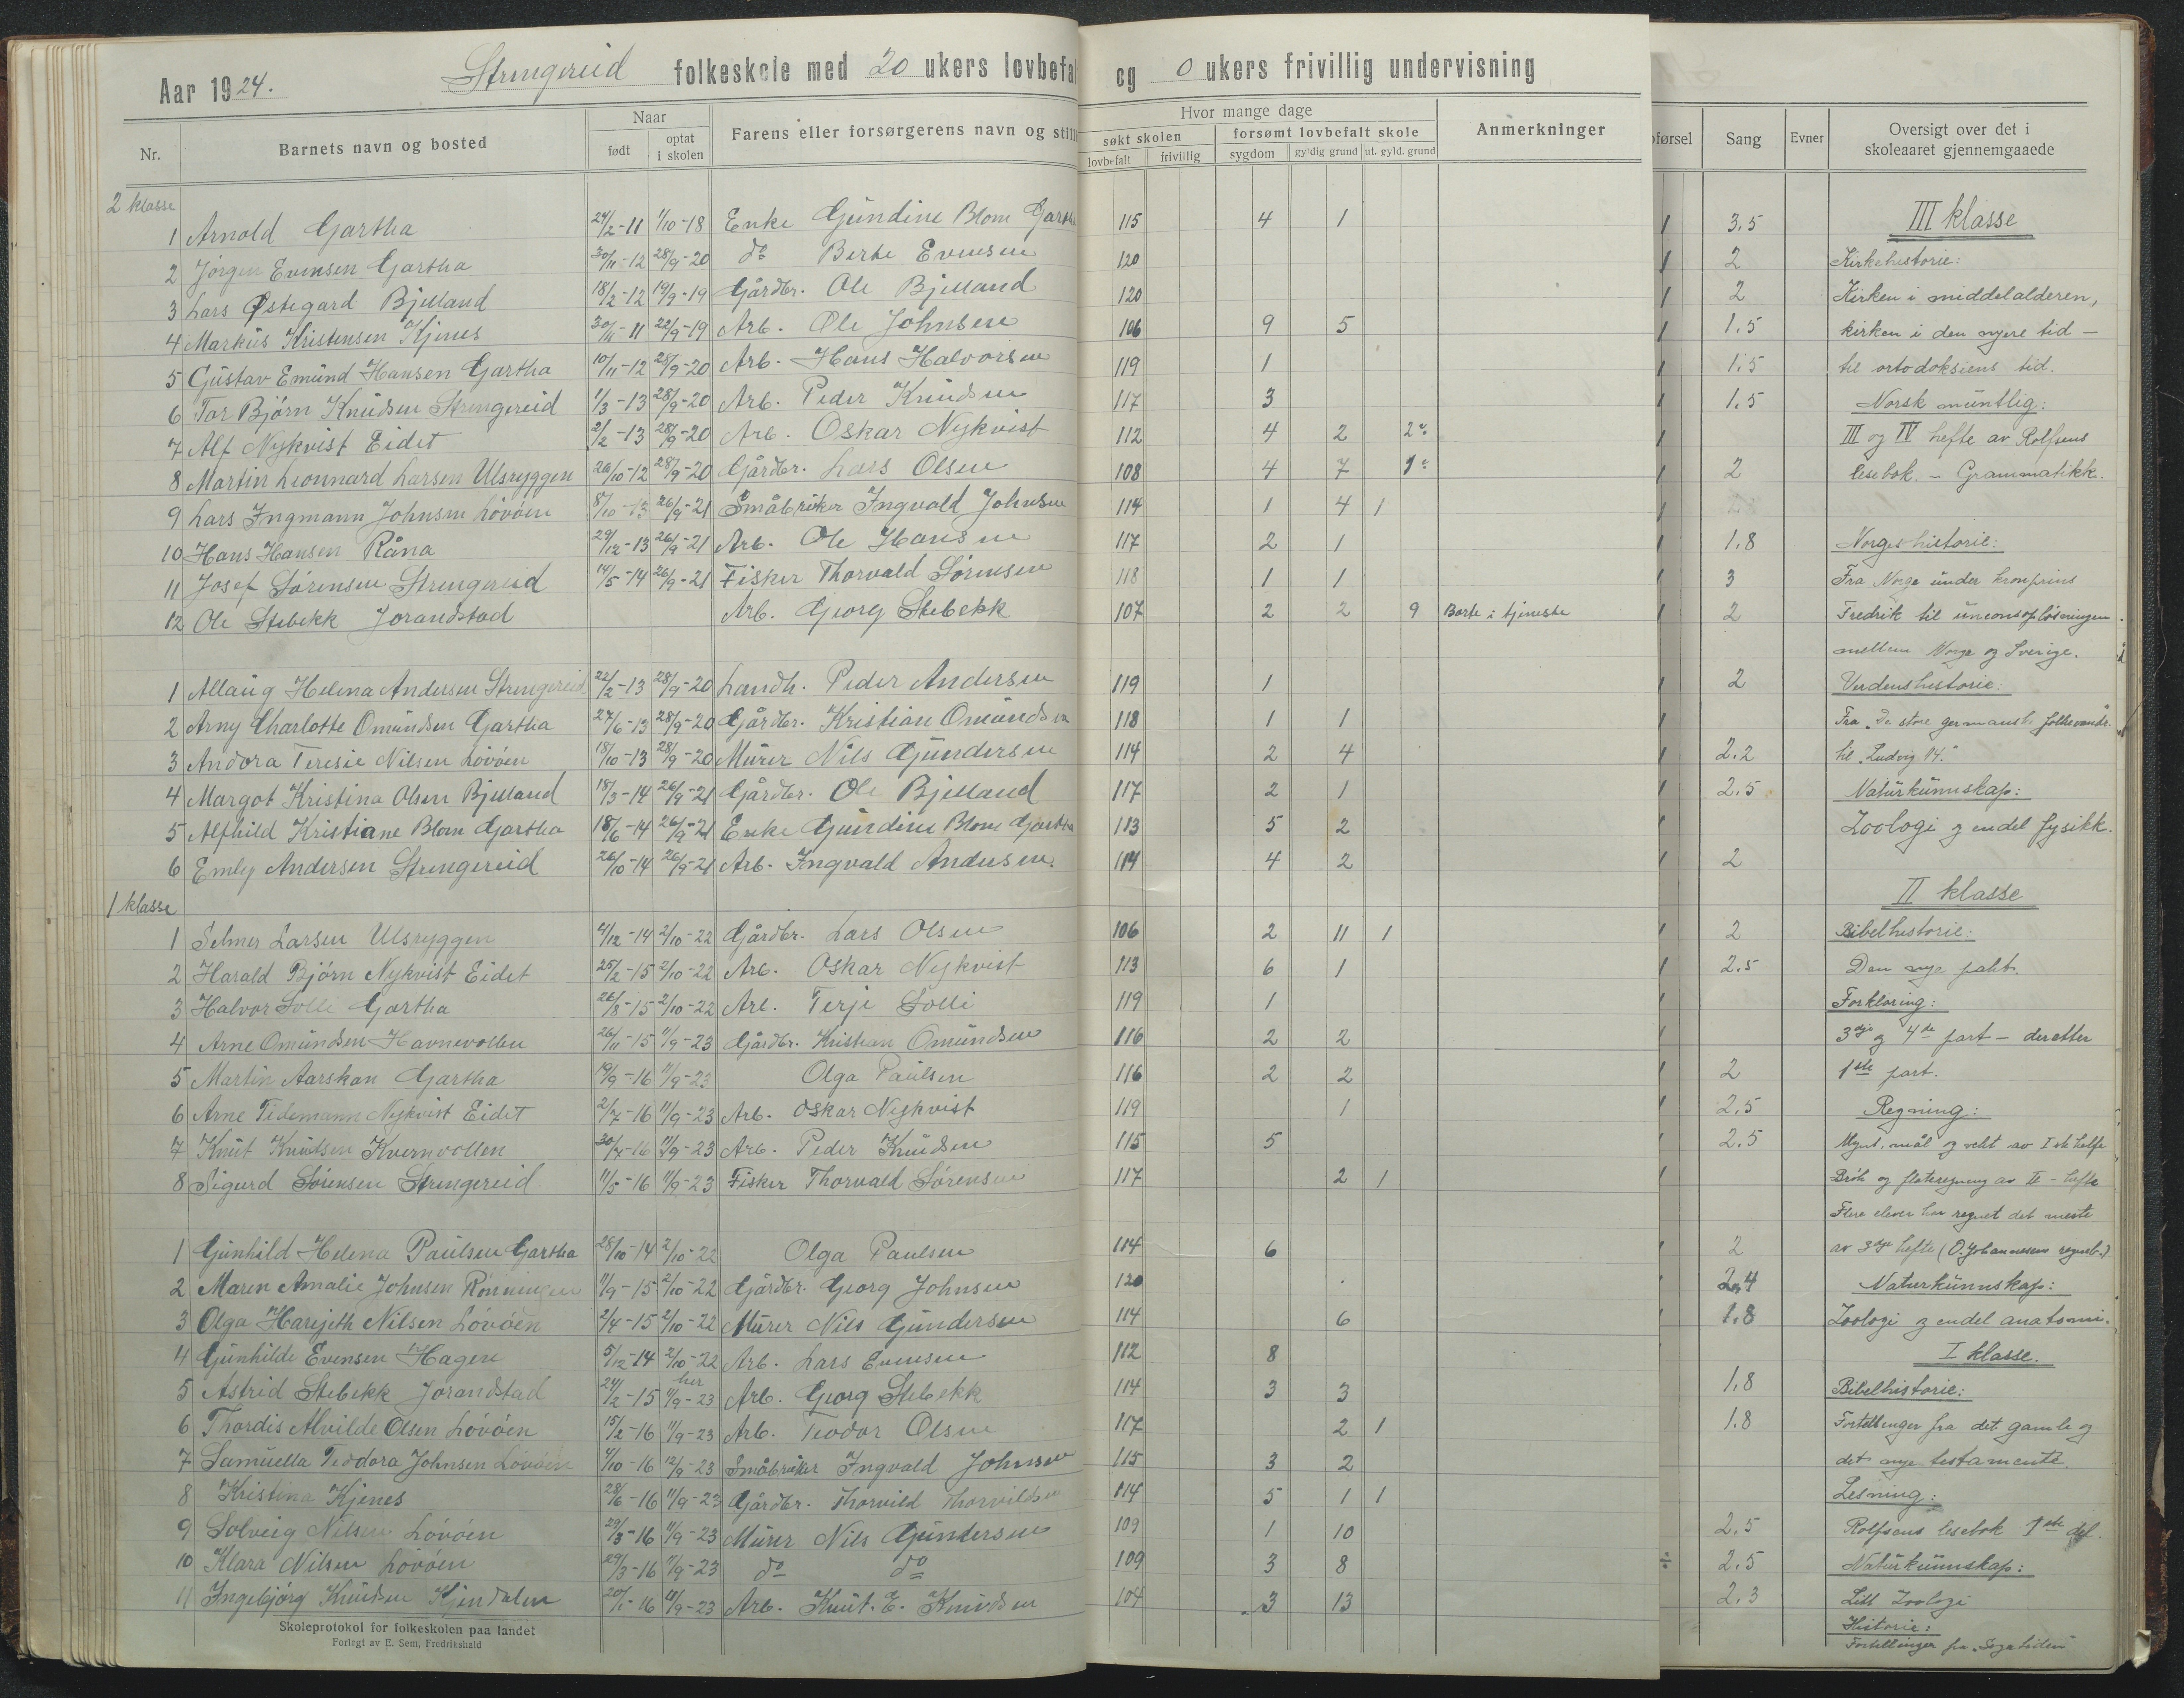 Aar 1924. Strengereid folkeskole med 20 ukers lovbefal og 0 ukers frivillig undervisning
Nr. Barnets navn og bosted Naar født optat i skolen Farens eller forsørgerens navn og still Hvor mange dage søkt skolen lovbefalt frivillig forsømt lovbefalt skole sygdom gyldig grund ut. gyld. grund Anmerkninger førsel Sang Evner Oversigt over det i skoleaaret gjennemgaaede
2 klasse
1 Arnold Gartha 24/2-11 1/10-18 Enke Gundine Blom Garth 115 4 1 3,5 III klasse
2 Jørgen Evensen Gartha 30/11-12 28/9-20 do Berte Evensen 120 2 Kirkehistorie:
3 Lars Østegard Bjelland 18/2-12 19/9-19 Gårdbr. Ole Bjelland 120 2 Kirken i middelalderen,
4 Markus Kristensen Kjenes 30/11-11 22/9-19 Arb. Ole Johnsen 106 9 5 1.5 kirken i den nyere tid -
5 Gustav Emund Hansen Gartha 10/11-12 28/9-20 Arb. Hans Halvorsen 119 1 1,5 til ortodoksiens tid.
6 Tor Bjørn Knudsen Strengereid 1/3-13 28/9-20 Arb. Peder Knudsen 117 3 1,5 Norsk muntlig:
7 Alf Nykvist Eidet 2/2-13 28/9-20 Arb. Oskar Nykvist 112 4 2 2 III og IV hefte av Rolfsens
8 Martin Leonnard Larsen Ulsryggen 26/10-12 28/9-20 Gårdbr. Lars Olsen 108 4 7 1 2 lesebok. - Grammatikk.
9 Lars Ingmann Johnsen Løvøen 8/10-13 26/9-21 Småbruker Ingvald Johnsen 114 1 4 1
10 Hans Hansen Råna 29/12-13 26/9-21 Arb. Ole Hansen 117 2 1 1,8 Norgeshistorie:
11 Josef Sørensen Strengereid 14/5-14 26/9-21 Fisker Thorvald Sørensen 118 1 1 3 Fra Norge under kronprins
12 Ole Stebekk Jorandstad Arb. Georg Stebekk 107 2 2 9 Borte i tjeneste 2 Fredrik til unionsopløsningen
mellem Norge og Sverige.
1 Allaug Helena Andersen Strengereid 22/2-13 28/9-20 Landh. Peder Andersen 119 1 2 Verdenshistorie:
2 Arny Charlotte Omundsen Gartha 27/6-13 28/9-20 Gårdbr. Kristian Omundsen 118 1 1 Fra "De store germansk folkevandr.
3 Andora Teresie Nilsen Løvøen 18/10-13 28/9-20 Murer Nils Gundersen 114 2 4 2.2 til "Ludvig 14."
4 Margot Kristina Olsen Bjelland 18/3-14 26/9-21 Gårdbr. Ole Bjelland 117 2 1 2.5 Naturkunnskap:
5 Alfhild Kristiane Blom Gartha 18/6-14 26/9-21 Enke Gundine Blom Gartha 113 5 2 Zoologi og endel fysikk.
6 Emly Andersen Strengereid 26/10-14 26/9-21 Arb. Ingvald Andersen 114 4 2 2
1 klasse II klasse
1 Selmer Larsen Ulsryggen 4/12-14 2/10-22 Gårdbr. Lars Olsen 106 2 11 1 2 Bibelhistorie:
2 Harald Bjørn Nykvist Eidet 25/2-15 2/10-22 Arb. Oskar Nykvist 113 6 1 2.5 Den nye pakt.
3 Halvor Solli Gartha 26/8-15 2/10-22 Arb. Terje Solli 119 1 Forklaring:
4 Arne Omundsen Havnevollen 26/11-15 11/9-23 Gårdbr. Kristian Omundsen 116 2 2 3dje og 4de part - deretter
5 Martin Aarskan Gartha 19/9-16 11/9-23 Olga Paulsen 116 2 2 2 1ste part.
6 Arne Tidemann Nykvist Eidet 2/7-16 11/9-23 Arb. Oskar Nykvist 119 1 2,5 Regning:
7 Knut Knudsen Kvernvollen 30/4-16 11/9-23 Arb. Peder Knudsen 115 5 2.5 Mynt, mål og vekt av I ste hefte
8 Sigurd Sørensen Strengereid 11/5-16 11/9-23 Fisker Thorvald Sørensen 117 2 1 Brøk og flateregning av II - hefte
Flere elever har regnet det meste
1 Gunhild Helena Paulsen Gartha 28/10-14 2/10-22 Olga Paulsen 114 6 2 av 3dje hefte (O. Johannesens regneb.)
2 Maren Amalie Johnsen Rønningen 11/9-15 2/10-22 Gårdbr. Georg Johnsen 120 2,4 Naturkunnskap:
3 Olga Harijith Nilsen Løvøen 2/4-15 2/10-22 Murer Nils Gundersen 114 6 1.8 Zoologi og endel anatomi.
4 Gunhilde Evensen Hagen 5/12-14 2/10-22 Arb. Lars Evensen 112 8 I klasse.
5 Astrid Stebekk Jorandstad 24/2-15 her 11/9-23 Arb. Georg Stebekk 114 3 3 1,8 Bibelhistorie:
6 Thordis Alvilde Olsen Løvøen 15/2-16 11/9-23 Arb. Teodor Olsen 117 2 1 1.8 Fortellinger fra det gamle og
7 Samuella Teodora Johnsen Løvøen 4/10-16 12/9-23 Småbruker Ingvald Johnsen 115 3 2 det nye testamente.
8 Kristina Kjenes 28/6-16 11/9-23 Gårdbr. Thorvild Thorvildsen 114 5 1 1 Lesning:
9 Solveig Nilsen Løvøen 29/3-16 11/9-23 Murer Nils Gundersen 109 1 10 2,5 Rolfsens lesebok 1ste del.
10 Klara Nilsen Løvøen 29/3-16 11/9-23 do do 109 3 8 ÷ 2.5 Naturkunnskap:
11 Ingebjørg Knudsen Kjendalen 20/1-16 11/9-23 Arb. Knut. E. Knudsen 104 3 13 2,3 Litt Zoologi
Historie:
Fortellinger fra "Sagatiden"
Skoleprotokol for folkeskolen paa landet
Forlagt av E. Sem, Fredrikshald